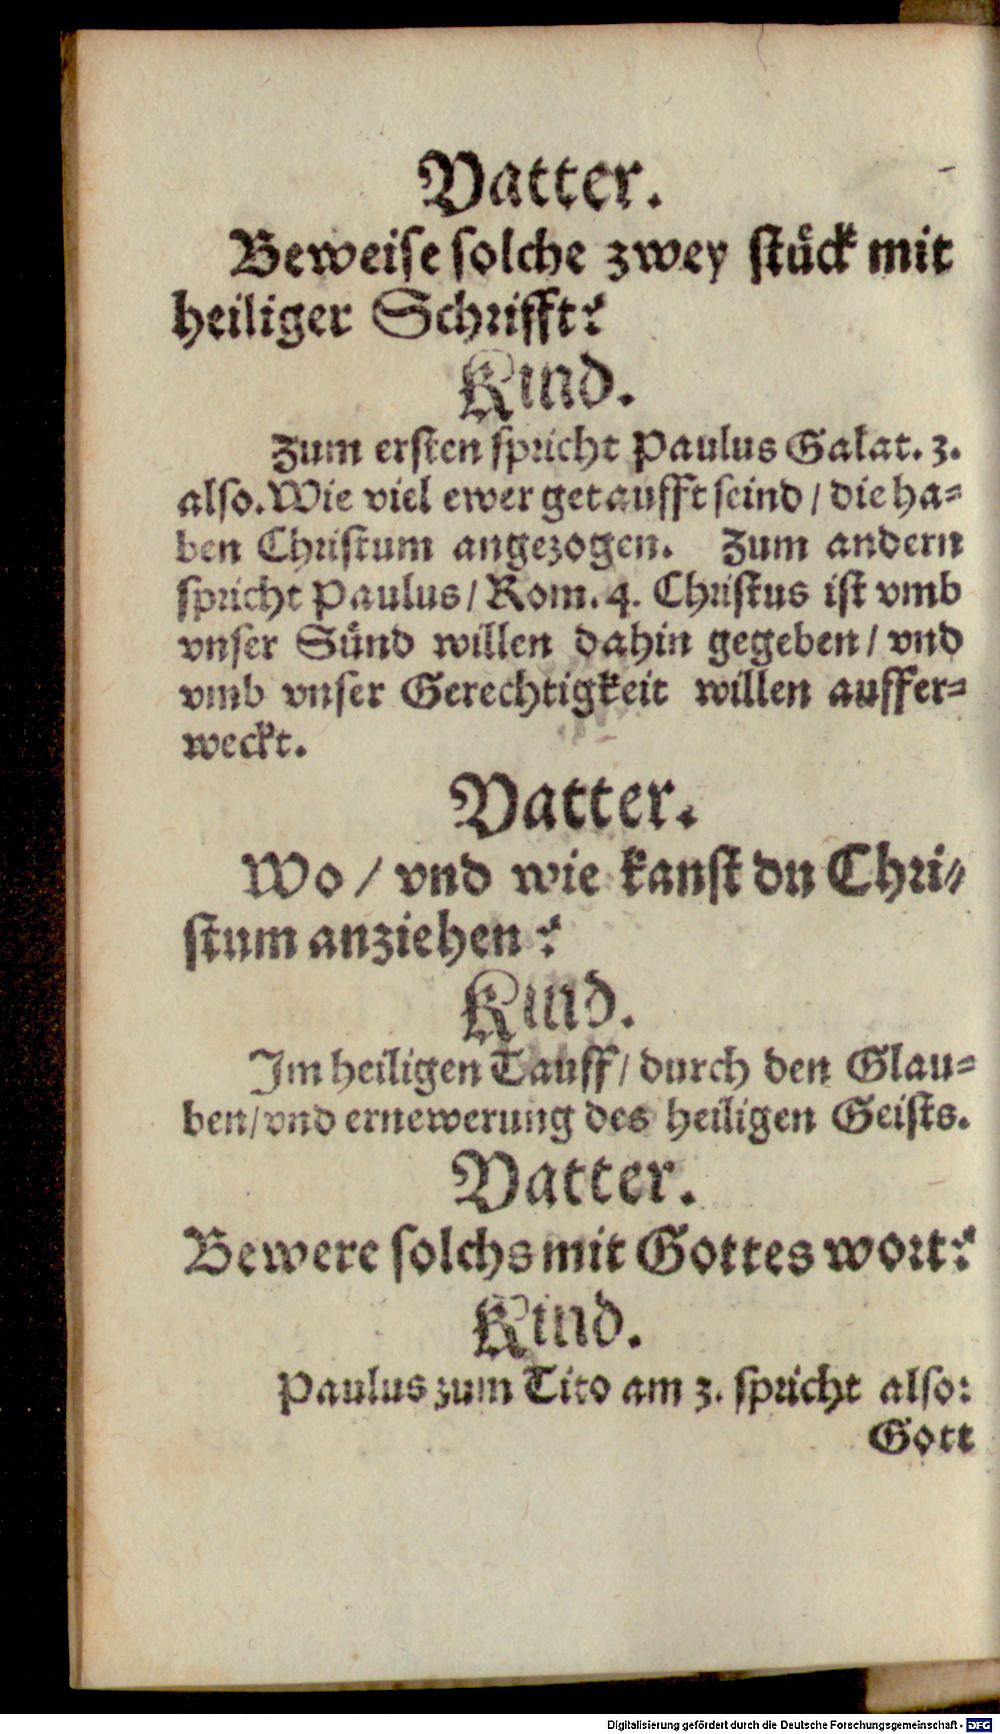 Vatter.
Beweise solche zwey stück mit
heiliger Schrifft?
Kind.
Zum ersten spricht Paulus Galat. 3.
also. Wie viel ewer getaufft seind / die ha=
ben Christum angezogen. Zum andern
spricht Paulus / Rom. 4. Christus ist vmb
vnser Sünd willen dahin gegeben / vnd
vmb vnser Gerechtigkeit willen auffer=
weckt.
Vatter.
Wo / vnd wie kanst du Chri=
stum anziehen?
Kind.
Im heiligen Tauff / durch den Glau=
ben / vnd ernewerung des heiligen Geists.
Vatter.
Bewere solchs mit Gottes wort?
Kind.
Paulus zum Tito am 3. spricht also:
Gott
Digitalisierung gefördert durch die Deutsche Forschungsgemeinschaft - DFG